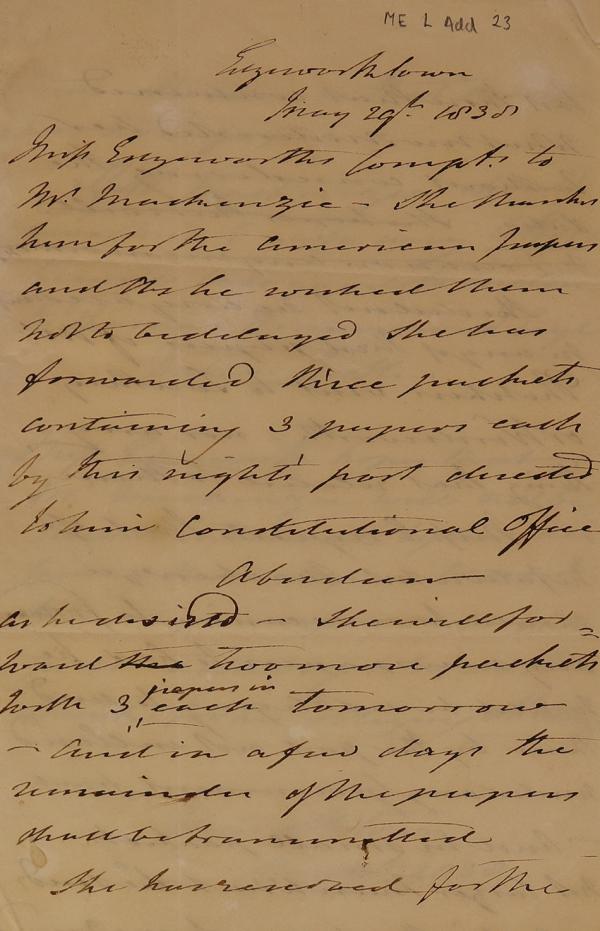 ME L Add 23
Edgeworthtown
May 29th 1838
Miss Edgeworths Compts. to
Mr. Mackenzie - She thanks
him for the American papers
and As he wished them
not to be delayed She has
forwarded three packets
containing 3 papers each
by this night's post directed
to him Constitutional Office
Aberdeen
as he desired - She will for=
ward the two more packets
with 3 papers in each tomorrow
- And in a few days the
remainder of the papers
shall be transmitted
She has reserved for the